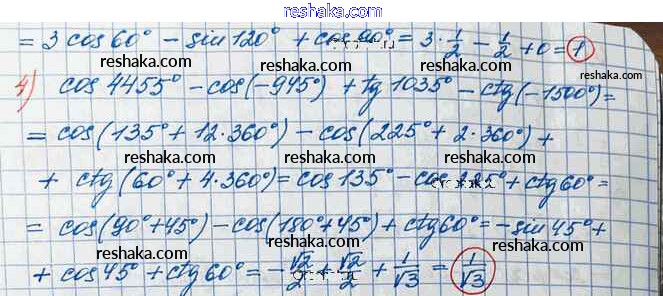 reshaka.com
= 3 cos 60° - sin 120° + cos 90° = 3 · 1/2 - 1/2 + 0 = 1
reshaka.com reshaka.com reshaka.com
4) cos 4455° - cos(-945°) + tg 1035° - ctg(-1500°) =
reshaka.com reshaka.com reshaka.com
= cos(135° + 12·360°) - cos(225° + 2·360°) +
reshaka.com reshaka.com reshaka.com
+ ctg(60° + 4·360°) = cos 135° - cos 225° + ctg 60° =
reshaka.com reshaka.com reshaka.com
= cos(90° + 45°) - cos(180° + 45°) + ctg 60° = - sin 45° +
reshaka.com reshaka.com reshaka.com
+ cos 45° + ctg 60° = - √2/2 + √2/2 + 1/√3 = 1/√3